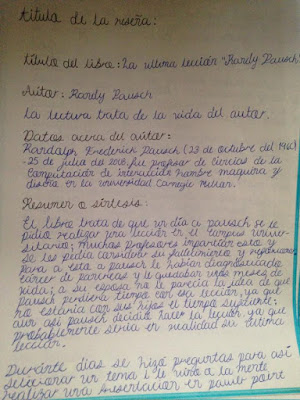 titulo de la reseña:
título del libro: La ultima lección "Randy Pausch"
Autor: Randy Pausch
La lectura trata de la vida del autor.
Datos acerca del autor:
Randalph Frederick Pausch (23 de octubre del 1960)
- 25 de julio de 2008. fue profesor de ciencias de la
Computación de interacción hombre maquina y
diseño en la universidad Carnegie Mellon.
Resumen o síntesis:
El libro trata de que un día a pausch se le
pidio realizar una lección en el campus univer-
sitario; muchos profesores impartían esto y
se les pedia considerar su fallecimiento y
para a esta a pausch le habían diagnosticado
cáncer de páncreas y le quedaban unos meses de
vida; a su esposa no le parecía la idea de que
pausch perdiera tiempo con esa lección, ya que
no estaría con sus hijos el tiempo suficiente;
aun así pausch decidió hacer la lección, ya que
probablemente sería en realidad su última
lección.
Durante días se hizo preguntas para así
seleccionar un tema i le vino a la mente
realizar una disertación en power point